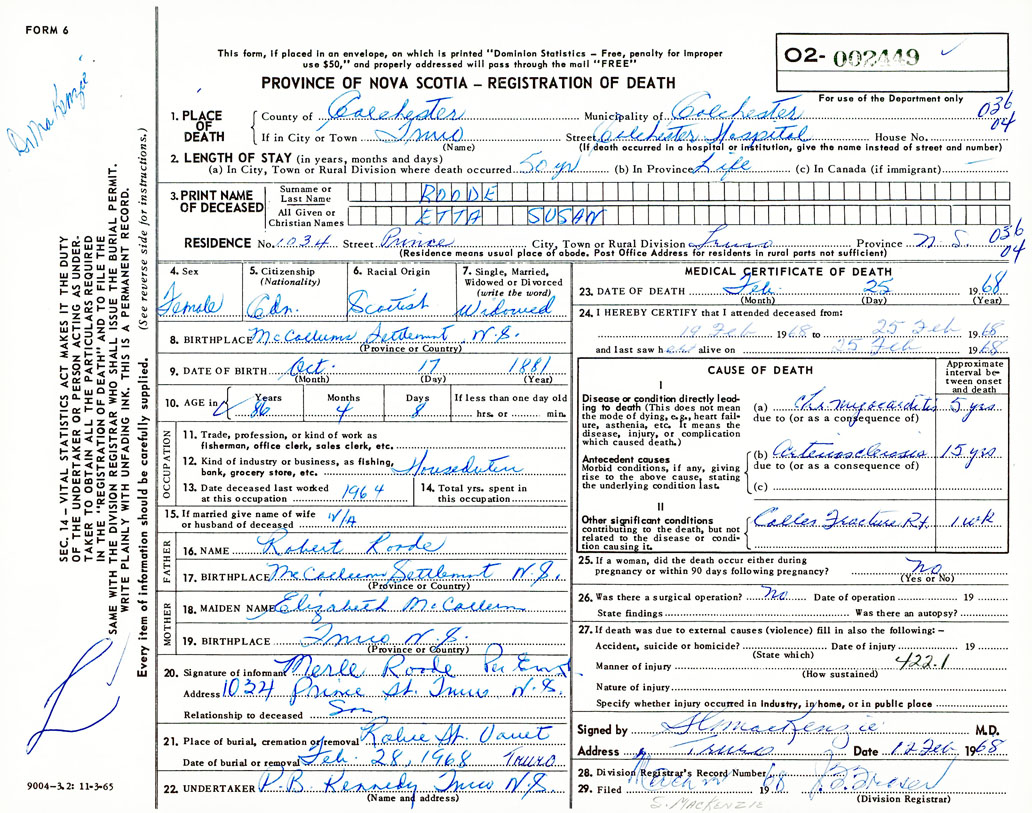 FORM 6
This form, if placed in an envelope, on which is printed "Dominion Statistics – Free, penalty for improper
use $50," and properly addressed will pass through the mail "FREE"
O2- 002449
PROVINCE OF NOVA SCOTIA – REGISTRATION OF DEATH
For use of the Department only
036
04
1. PLACE OF DEATH County of Colchester Municipality of Colchester
If in City or Town Truro Street Colchester Hospital House No.
(Name) (If death occurred in a hospital or institution, give the name instead of street and number)
2. LENGTH OF STAY (in years, months and days)
(a) In City, Town or Rural Division where death occurred 50 yr (b) In Province Life (c) In Canada (if immigrant) —
3. PRINT NAME OF DECEASED Surname or Last Name ROODE
All Given or Christian Names ETTA SUSAN
RESIDENCE No. 1034 Street Prince City, Town or Rural Division Truro Province N.S. 036
04
(Residence means usual place of abode. Post Office Address for residents in rural parts not sufficient)
4. Sex Female
5. Citizenship (Nationality) Cdn.
6. Racial Origin Scottish
7. Single, Married, Widowed or Divorced (write the word) Widowed
8. BIRTHPLACE McCallums Settlement N.S.
(Province or Country)
9. DATE OF BIRTH Oct. 17 1881
(Month) (Day) (Year)
10. AGE in Years 86 Months 4 Days 8 If less than one day old hrs. or min.
OCCUPATION
11. Trade, profession, or kind of work as fisherman, office clerk, sales clerk, etc.
12. Kind of industry or business, as fishing, bank, grocery store, etc. Houseduties
13. Date deceased last worked at this occupation 1964
14. Total yrs. spent in this occupation
15. If married give name of wife or husband of deceased N/A
FATHER
16. NAME Robert Roode
17. BIRTHPLACE McCallum Settlement N.S.
(Province or Country)
MOTHER
18. MAIDEN NAME Elizabeth McCallum
19. BIRTHPLACE Truro N.S.
(Province or Country)
20. Signature of informant Merle Roode Per
Address 1034 Prince St. Truro N.S.
Relationship to deceased Son
21. Place of burial, cremation or removal Robie St. Vault
Date of burial or removal Feb. 28, 1968 Truro
22. UNDERTAKER P.B. Kennedy Truro N.S.
(Name and address)
MEDICAL CERTIFICATE OF DEATH
23. DATE OF DEATH Feb. 25 1968
(Month) (Day) (Year)
24. I HEREBY CERTIFY that I attended deceased from:
19 Feb 1968 to 25 Feb 1968
and last saw h alive on 25 Feb 1968
CAUSE OF DEATH
Approximate interval between onset and death
I
Disease or condition directly leading to death (This does not mean the mode of dying, e.g., heart failure, asthenia, etc. It means the disease, injury, or complication which caused death.)
(a) Chr myocarditis 5 yrs
due to (or as a consequence of)
Antecedent causes
Morbid conditions, if any, giving rise to the above cause, stating the underlying condition last.
(b) Arteriosclerosis 15 yrs
due to (or as a consequence of)
(c)
II
Other significant conditions
contributing to the death, but not related to the disease or condition causing it.
Colles Fracture Rt. 1 wk
25. If a woman, did the death occur either during pregnancy or within 90 days following pregnancy? No
(Yes or No)
26. Was there a surgical operation? No Date of operation 19
State findings Was there an autopsy?
27. If death was due to external causes (violence) fill in also the following: –
Accident, suicide or homicide? Date of injury 19
(State which)
Manner of injury 422.1
(How sustained)
Nature of injury
Specify whether injury occurred in industry, in home, or in public place
Signed by MacKenzie M.D.
Address Truro Date 12 Feb 1968
28. Division Registrar's Record Number
29. Filed March 1968 Fraser
(Division Registrar)
S. MACKENZIE
Dr MacKenzie
SEC. 14 – VITAL STATISTICS ACT MAKES IT THE DUTY
OF THE UNDERTAKER OR PERSON ACTING AS UNDER-
TAKER TO OBTAIN ALL THE PARTICULARS REQUIRED
IN THE "REGISTRATION OF DEATH" AND TO FILE THE
SAME WITH THE DIVISION REGISTRAR WHO SHALL ISSUE THE BURIAL PERMIT.
WRITE PLAINLY WITH UNFADING INK. THIS IS A PERMANENT RECORD.
Every item of information should be carefully supplied. (See reverse side for instructions.)
9004–3.2: 11-3-65